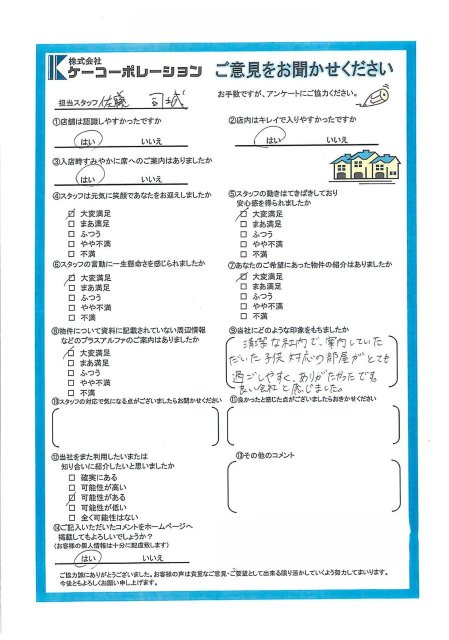 株式会社
ケーコーポレーション
ご意見をお聞かせください
お手数ですが、アンケートにご協力ください。
担当スタッフ 佐藤 司城
①店舗は認識しやすかったですか
はい いいえ
②店内はキレイで入りやすかったですか
はい いいえ
③入店時すみやかに席へのご案内はありましたか
はい いいえ
④スタッフは元気に笑顔であなたをお迎えしましたか
大変満足
まあ満足
ふつう
やや不満
不満
⑤スタッフの動きはてきぱきしており
安心感を得られましたか
大変満足
まあ満足
ふつう
やや不満
不満
⑥スタッフの言動に一生懸命さを感じられましたか
大変満足
まあ満足
ふつう
やや不満
不満
⑦あなたのご希望にあった物件の紹介はありましたか
大変満足
まあ満足
ふつう
やや不満
不満
⑧物件について資料に記載されていない周辺情報
などのプラスアルファのご案内はありましたか
大変満足
まあ満足
ふつう
やや不満
不満
⑨当社にどのような印象をもちましたか
清潔な社内で、案内していた
だいた子供対応の部屋がとても
過ごしやすく、ありがたかったです
良い会社と感じました。
⑩スタッフの対応で気になる点がございましたらお聞かせください
⑪良かったと感じた点がございましたらおきかせください
⑫当社をまた利用したいまたは
知り合いに紹介したいと思いましたか
確実にある
可能性が高い
可能性がある
可能性が低い
全く可能性はない
⑬その他のコメント
⑭ご記入いただいたコメントをホームページへ
掲載してもよろしいでしょうか？
(お客様の個人情報は十分に配慮致します)
はい いいえ
ご協力誠にありがとうございました。お客様の声は貴重なご意見・ご要望として出来る限り活かしていくよう努力してまいります。
今後ともよろしくお願い申し上げます。